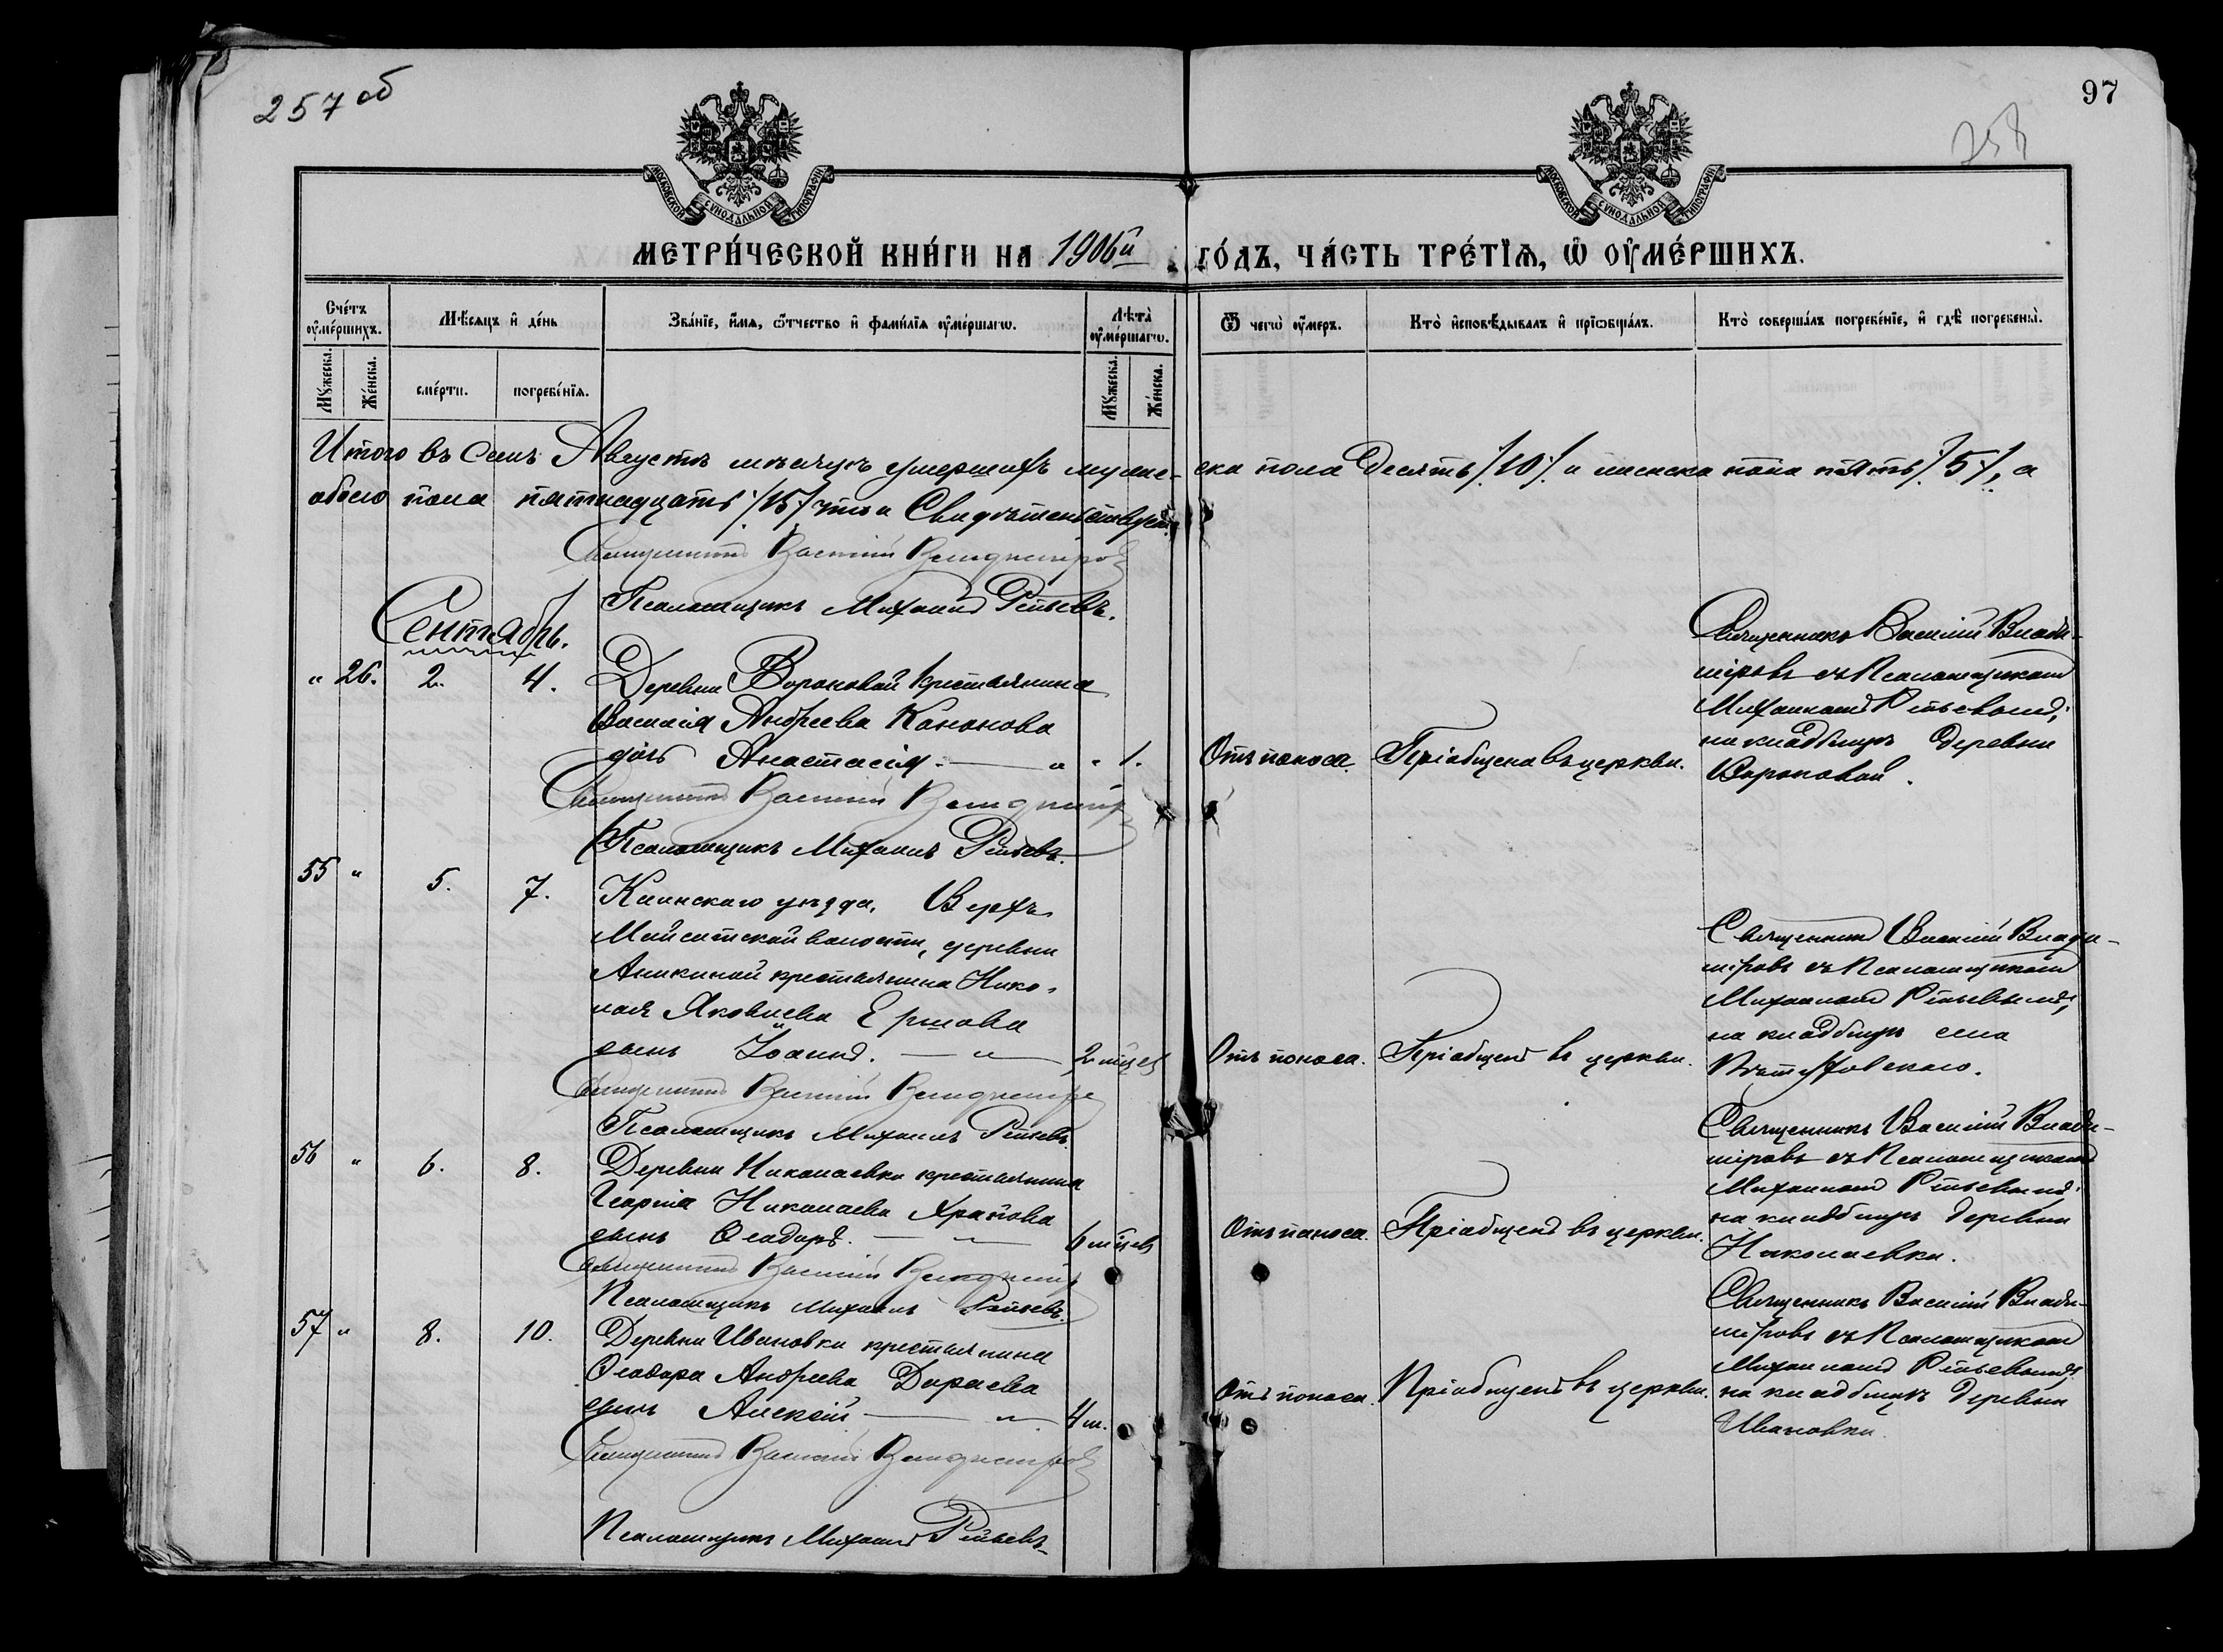 257 об
97
258
МОСКОВСКОЙ СѴНОДАЛЬНОЙ ТИПОГРАФІИ
МОСКОВСКОЙ СѴНОДАЛЬНОЙ ТИПОГРАФІИ
МЕТРИ́ЧЕСКОЙ КНИ́ГИ НА 1906й ГО́ДЪ, ЧА́СТЬ ТРЕ́ТІѦ, Ѡ ОУ҆МЕ́РШИХЪ.
Сче́тъ оу҆ме́ршихъ.
Мѣ́сяцъ и҆ де́нь
Зва́нїе, и҆́мѧ, ѻ҆́тчество и҆ фами́лїѧ оу҆ме́ршагѡ.
Лѣта̀ оу҆ме́ршагѡ.
Ѿ чегѡ̀ оу҆́меръ.
Кто̀ и҆сповѣ́дывалъ и҆ прїѡбща́лъ.
Кто̀ соверша́лъ погребе́нїе, и҆ гдѣ̀ погребены̀.
Мꙋ́жеска.
Же́нска.
сме́рти.
погребе́нїѧ.
Мꙋ́жеска.
Же́нска.
Итого въ семъ Августѣ мѣсяцѣ умершихъ мужеска пола десять /10/ и женска пола пять /5/, а
обоего пола пятнадцать /15/ что и свидѣтельствуемъ
Священникъ Василій Владиміровъ
Псаломщикъ Михаилъ Рѣпьевъ.
Сентябрь.
" 26. 2. 4. Деревни Вороновой крестьянина
Василія Андреева Кононова
дочь Анастасія. — " " 1. Отъ поноса. Пріобщена въ церкви.
Священникъ Василій Владиміровъ
съ Псаломщикомъ
Михаиломъ Рѣпьевымъ,
на кладбищѣ деревни
Вороновой.
Священникъ Василій Владиміръ
Псаломщикъ Михаилъ Рѣпьевъ.
55 " 5. 7. Каинскаго уѣзда, Верхъ
Майсатской волости, деревни
Аникиной крестьянина Нико-
лая Яковлева Ершова
сынъ Іоаннъ. — " — 2 мѣсяц Отъ поноса. Пріобщенъ въ церкви.
Священникъ Василій Влади-
міровъ съ Псаломщикомъ
Михаиломъ Рѣпьевымъ,
на кладбищѣ села
Священникъ Василій Владиміро
Псаломщикъ Михаилъ Рѣпьевъ
56 " 6. 8. Деревни Николаевки крестьянина
Георгія Николаева Храпова
сынъ Ѳеодоръ. — " — 6 мѣсяц Отъ поноса. Пріобщенъ въ церкви.
Священникъ Василій Влади-
міровъ съ Псаломщикомъ
Михаиломъ Рѣпьевымъ,
на кладбищѣ деревни
Николаевки.
Священникъ Василій Владиміръ
Псаломщикъ Михаилъ Рѣпьевъ.
57 " 8. 10. Деревни Ивановки крестьянина
Ѳеодора Андреева Дараева
сынъ Алексій — " — 4 м. Отъ поноса. Пріобщенъ въ церкви.
Священникъ Василій Влади-
міровъ съ Псаломщикомъ
Михаиломъ Рѣпьевымъ,
на кладбищѣ деревни
Ивановки.
Священникъ Василій Владиміровъ
Псаломщикъ Михаилъ Рѣпьевъ